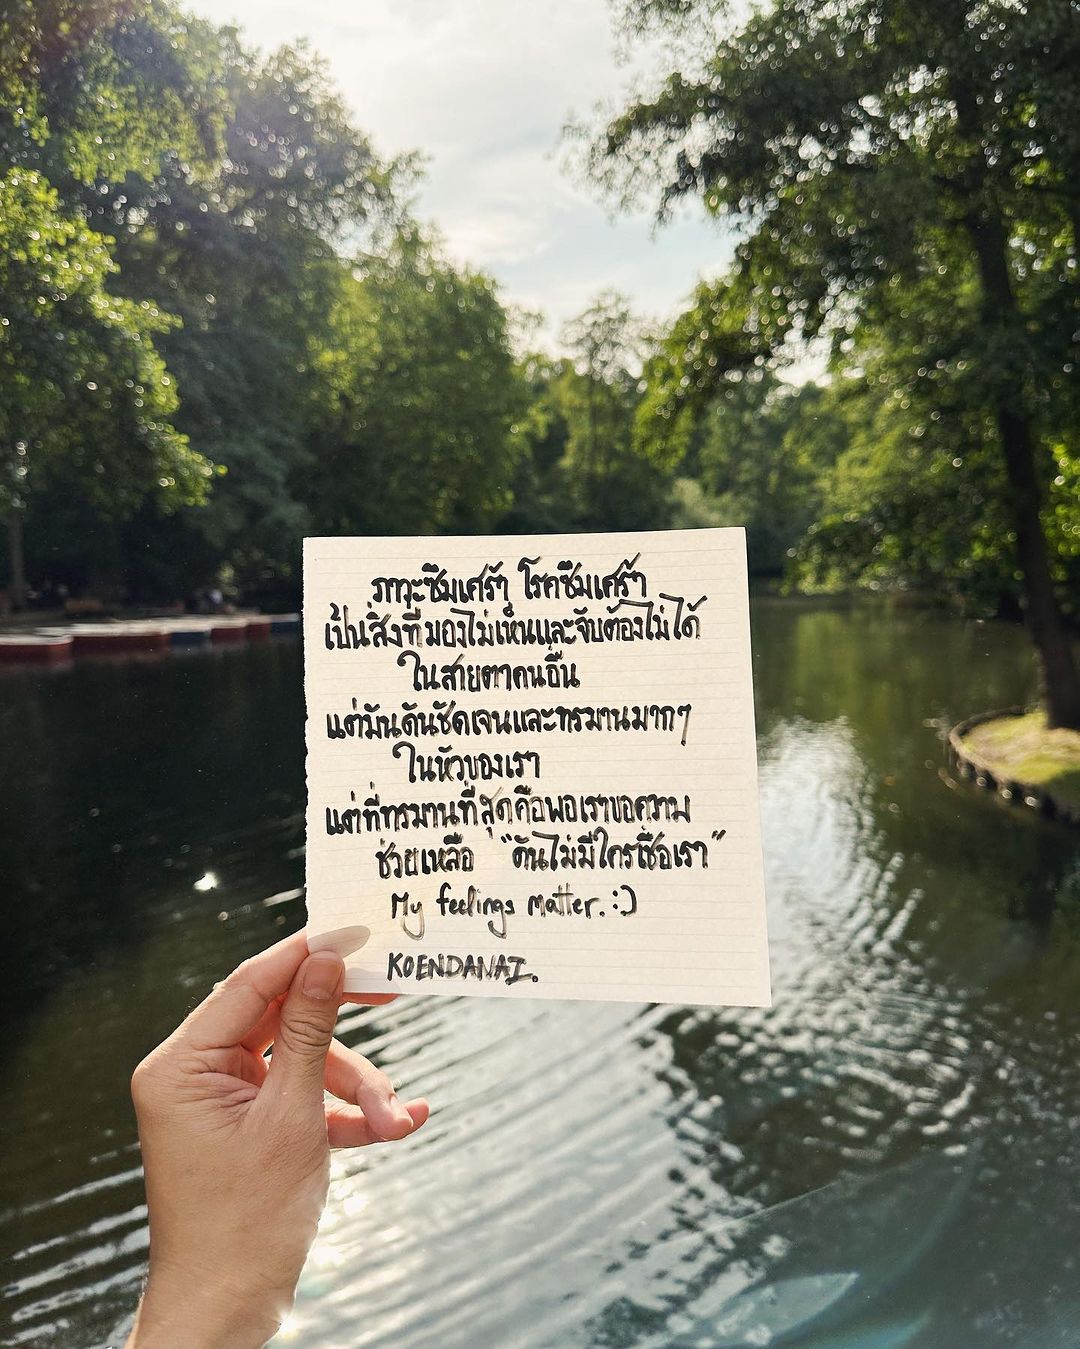 ภาวะซึมเศร้า โรคซึมเศร้า
เป็นสิ่งที่มองไม่เห็นและจับต้องไม่ได้
ในสายตาคนอื่น
แต่มันดันชัดเจนและทรมานมากๆ
ในหัวของเรา
แต่ที่ทรมานที่สุดคือพอเราขอความ
ช่วยเหลือ "ดันไม่มีใครเชื่อเรา"
My feelings matter. :)
KOENDANAI.